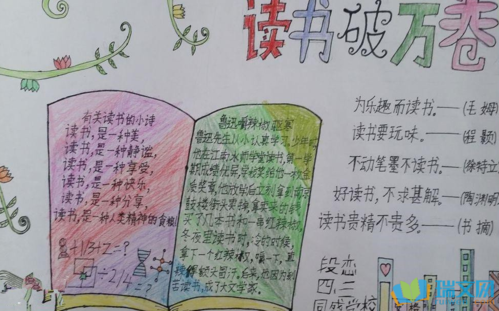 读书破万卷
有关读书的小诗
读书,是一种美,
读书,是一种静谧,
读书,是一种享受,
读书,是一种快乐,
读书,是一种分享,
读书,是一种人类精神的食粮!
鲁迅嚼辣椒驱寒
鲁迅先生从小认真学习。少年时,
在江南水师学堂读书,第一学
期成绩优异,学校奖给他一枚金
质奖章。他立刻拿到南京
鼓楼街头卖掉,然后
买了几本书和一串红辣椒。
夜里读书时,冷的时候,
拿下一个红辣椒,嚼一下,直
辣得额头冒汗。
苦读书,成了大文学家。
为乐趣而读书。——(毛姆)
读书要玩味。——(程颢)
不动笔墨不读书。——(徐特立)
好读书,不求甚解。——(陶渊明)
读书贵精不贵多。——(书摘)
段恋
四、三
同盛学校